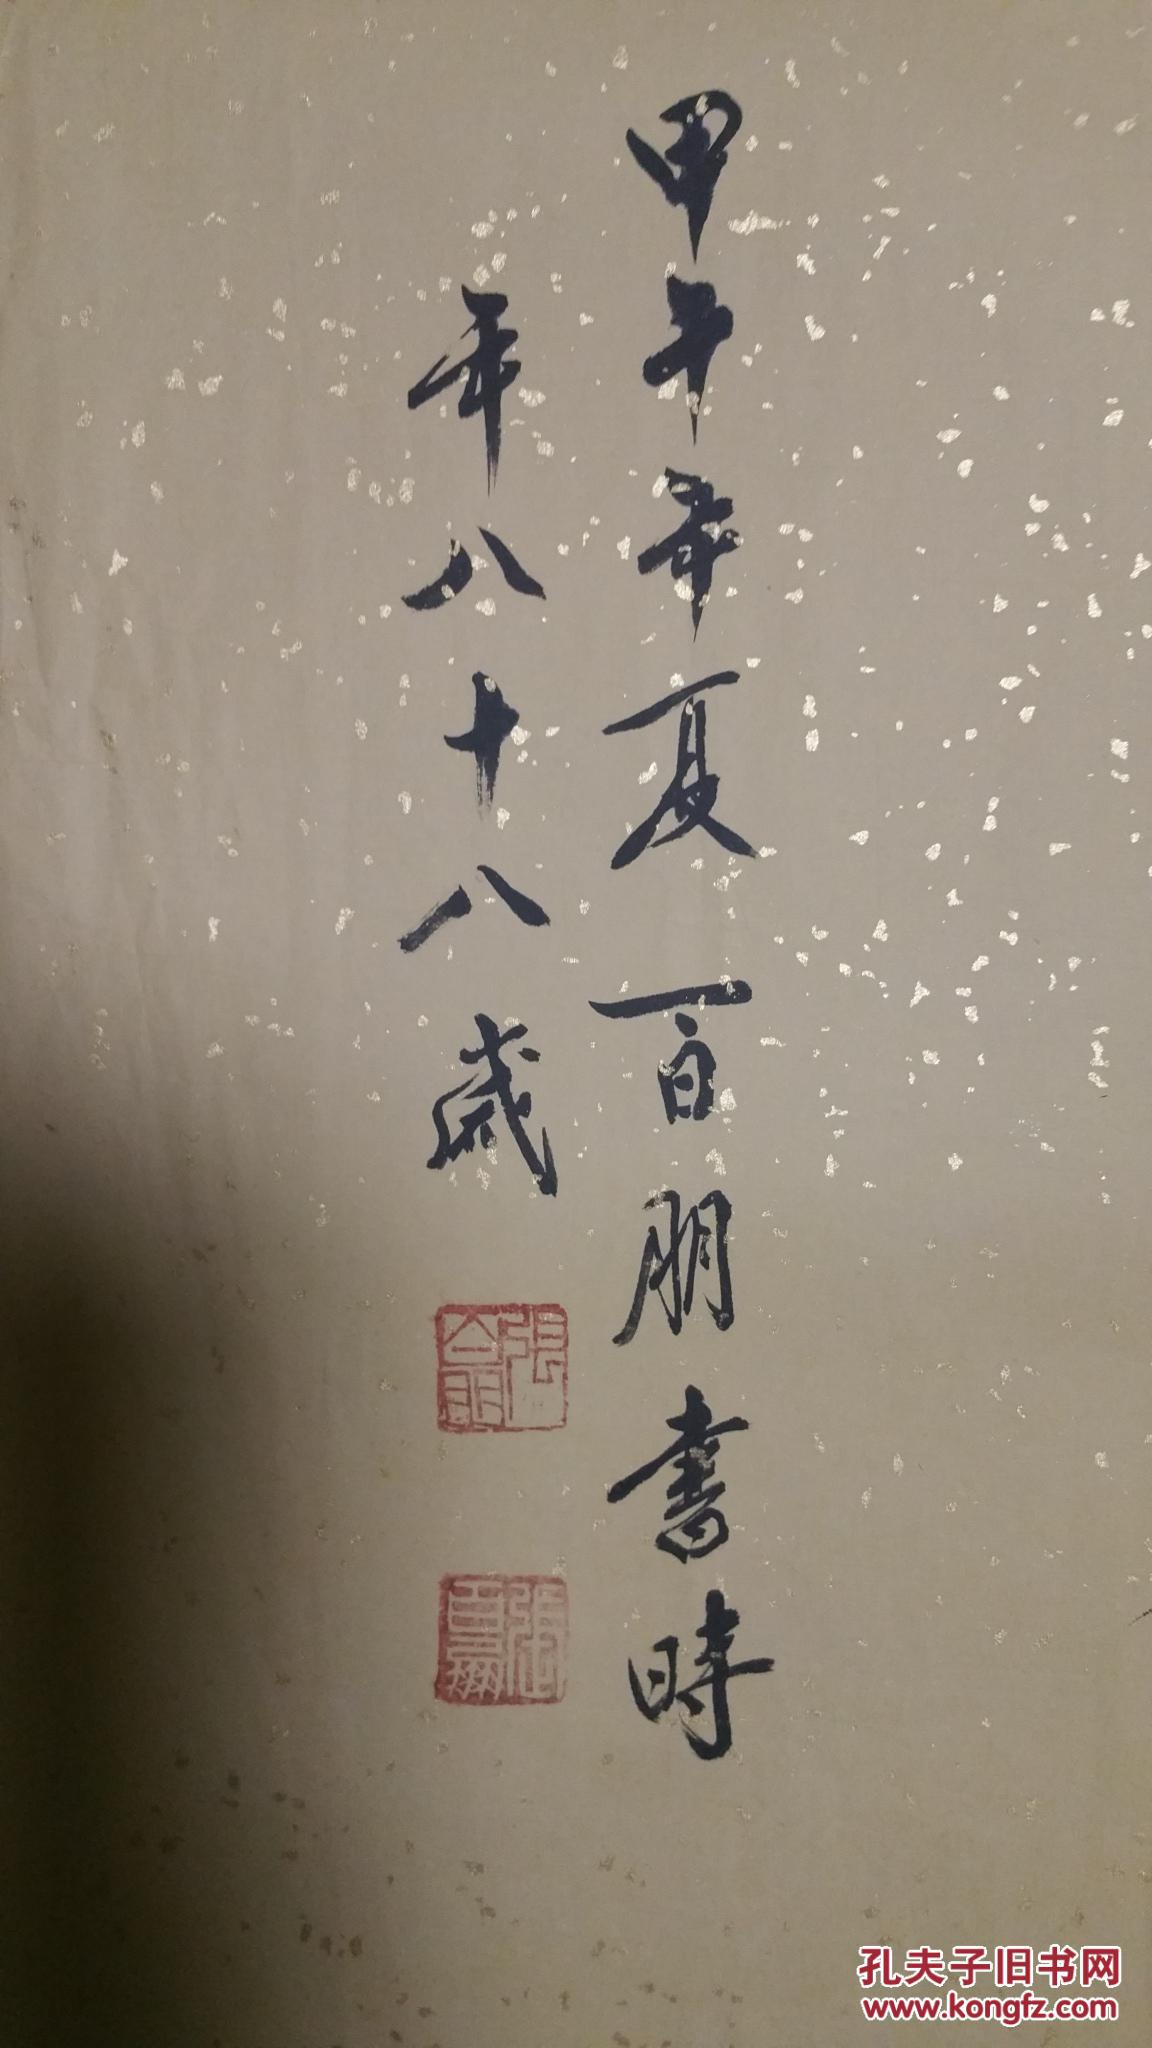 甲午年夏百朋書時
年八十八歲
孔夫子旧书网
www.kongfz.com